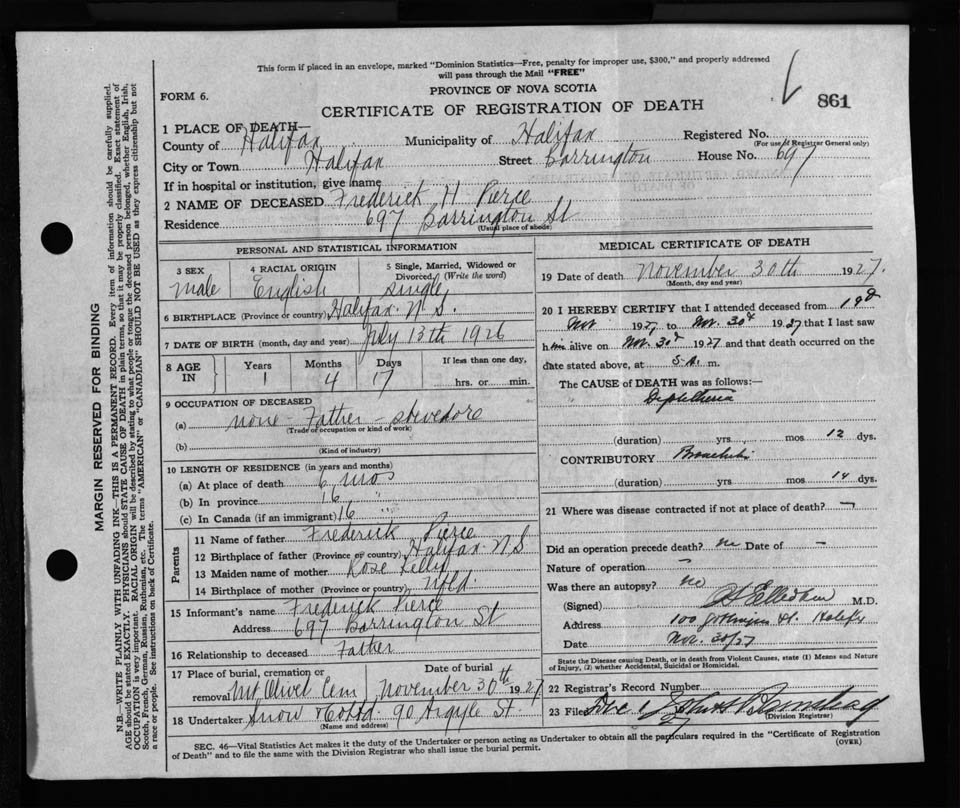 This form if placed in an envelope, marked "Dominion Statistics—Free, penalty for improper use, $300," and properly addressed
will pass through the Mail "FREE"
PROVINCE OF NOVA SCOTIA
FORM 6.
CERTIFICATE OF REGISTRATION OF DEATH
861
1 PLACE OF DEATH—
County of Halifax Municipality of Halifax Registered No.
(For use of Registrar General only)
City or Town Halifax Street Barrington House No. 697
If in hospital or institution, give name
2 NAME OF DECEASED Frederick H Pierce
Residence 697 Barrington St
(Usual place of abode)
PERSONAL AND STATISTICAL INFORMATION
3 SEX 4 RACIAL ORIGIN 5 Single, Married, Widowed or
Divorced (Write the word)
male English single
6 BIRTHPLACE (Province or country) Halifax N.S.
7 DATE OF BIRTH (month, day and year) July 13th 1926
8 AGE IN Years Months Days If less than one day,
1 4 17 hrs. or min.
9 OCCUPATION OF DECEASED
(a) none - Father - stevedore
(Trade or occupation or kind of work)
(b)
(Kind of industry)
10 LENGTH OF RESIDENCE (in years and months)
(a) At place of death 6 mos
(b) In province 16 "
(c) In Canada (if an immigrant) 16 "
Parents
11 Name of father Frederick Pierce
12 Birthplace of father (Province or country) Halifax N.S
13 Maiden name of mother Rose Kelly
14 Birthplace of mother (Province or country) Nfld.
15 Informant's name Frederick Pierce
Address 697 Barrington St
16 Relationship to deceased Father
17 Place of burial, cremation or Date of burial
removal Mt Olivet Cem November 30th 1927
18 Undertaker Snow & Co Ltd. 90 Argyle St.
(Name and address)
MEDICAL CERTIFICATE OF DEATH
19 Date of death November 30th 1927.
(Month, day and year)
20 I HEREBY CERTIFY that I attended deceased from 19th
Nov 1927 to Nov. 30th 1927 that I last saw
him alive on Nov. 30th 1927 and that death occurred on the
date stated above, at 5 A. m.
The CAUSE of DEATH was as follows:—
Diphtheria
(duration) yrs mos 12 dys.
CONTRIBUTORY Bronchitis
(duration) yrs mos 14 dys.
21 Where was disease contracted if not at place of death? —
Did an operation precede death? no Date of —
Nature of operation —
Was there an autopsy? no
(Signed) M.D.
Address 100 St. Halifax
Date Nov. 30/27
State the Disease causing Death, or in death from Violent Causes, state (1) Means and Nature
of Injury, (2) whether Accidental, Suicidal or Homicidal.
22 Registrar's Record Number
23 Filed Dec
(Division Registrar)
SEC. 46—Vital Statistics Act makes it the duty of the Undertaker or person acting as Undertaker to obtain all the particulars required in the "Certificate of Registration
of Death" and to file the same with the Division Registrar who shall issue the burial permit.
(OVER)
MARGIN RESERVED FOR BINDING
N.B.—WRITE PLAINLY, WITH UNFADING INK—THIS IS A PERMANENT RECORD. Every item of information should be carefully supplied.
AGE should be stated EXACTLY. PHYSICIANS should STATE CAUSE OF DEATH in plain terms, so that it may be properly classified. Exact statement of
OCCUPATION is very important. RACIAL ORIGIN will be described by stating to what people or tongue the deceased person belonged, whether English, Irish,
Scotch, French, German, Russian, Ruthenian, etc. The terms "AMERICAN" or "CANADIAN" SHOULD NOT BE USED as they express citizenship but not
a race or people. See instructions on back of Certificate.